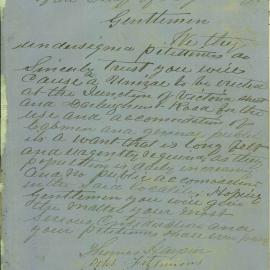 Gentlemen
We the
undersigned petitioners do
Sincerely trust you will
Cause a Urinal to be erected
at the Junction of Victoria Street
and Darlinghurst Road for the
use and accommodation of
Cabmen and general public
is a want that is long felt
and urgently required as the
population is daily increasing
And no public accommodation
in the said locality. Hoping
Gentlemen you will give
the matter your most
Serious Consideration and
your petitioners will ever pray
Thomas